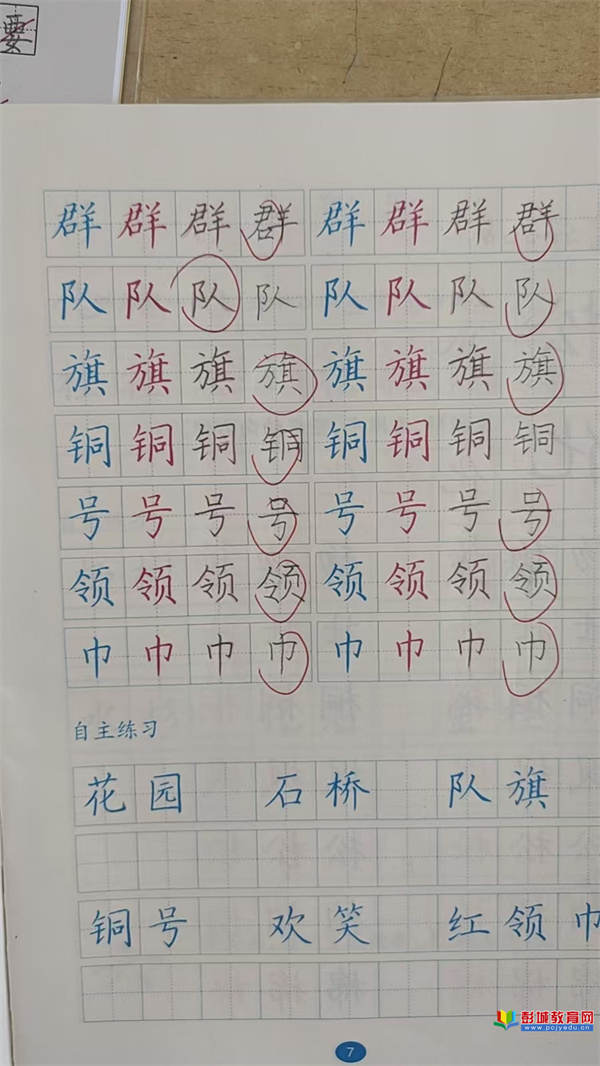 要
群群群群群群群群
队队队队队队队队
旗旗旗旗旗旗旗旗
铜铜铜铜铜铜铜铜
号号号号号号号号
领领领领领领领领
巾巾巾巾巾巾巾巾
自主练习
花园 石桥 队旗
铜号 欢笑 红领巾
7
彭城教育网
www.pcjyedu.cn